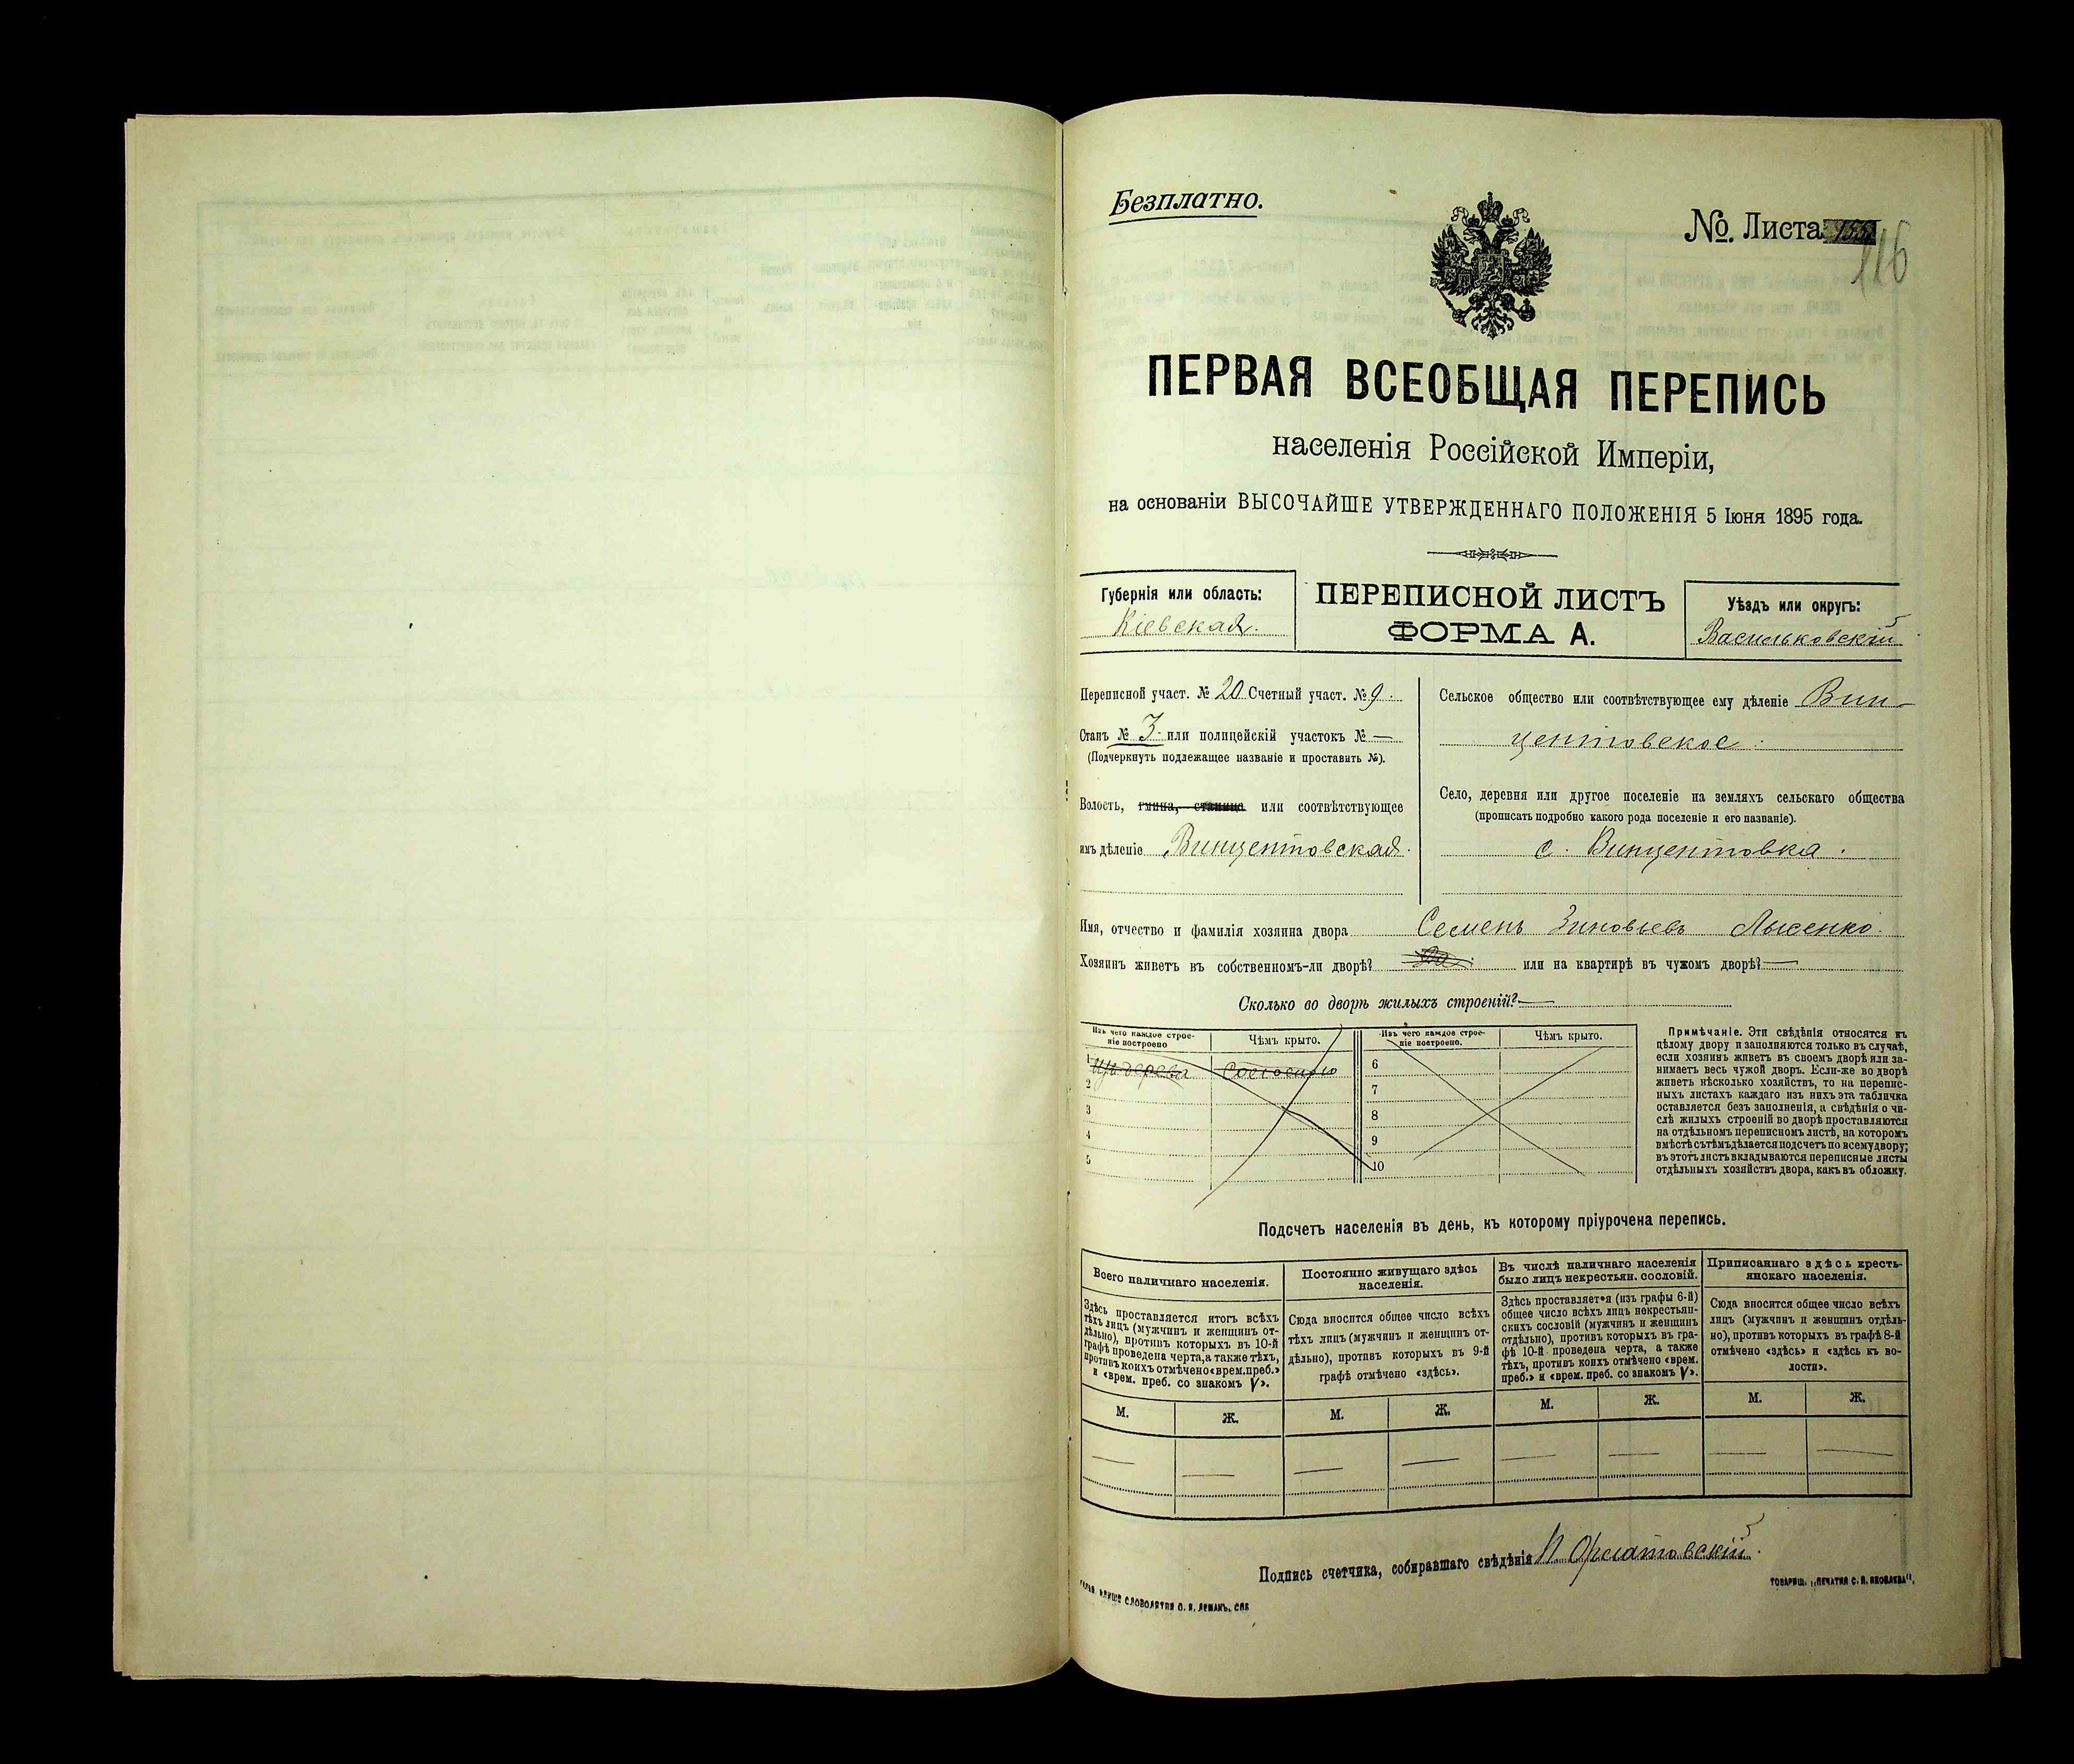 Безплатно.
№. Листа 155
116
ПЕРВАЯ ВСЕОБЩАЯ ПЕРЕПИСЬ
населенія Россійской Имперіи,
на основаніи ВЫСОЧАЙШЕ УТВЕРЖДЕННАГО ПОЛОЖЕНІЯ 5 Іюня 1895 года.
Губернія или область:
Кіевская.
ПЕРЕПИСНОЙ ЛИСТЪ
ФОРМА А.
Уѣздъ или округъ:
Васильковскій
Переписной участ. № 20 Счетный участ. № 9.
Станъ № 3. или полицейскій участокъ № —
(Подчеркнуть подлежащее названіе и проставить №).
Волость, гмина, станица или соотвѣтствующее
имъ дѣленіе Винцентовская.
Сельское общество или соотвѣтствующее ему дѣленіе Вин-
центовское.
Село, деревня или другое поселеніе на земляхъ сельскаго общества
(прописать подробно какого рода поселеніе и его названіе).
с. Винцентовка.
Имя, отчество и фамилія хозяина двора Семенъ Зиновьевъ Лысенко.
Хозяинъ живетъ въ собственномъ-ли дворѣ? Да. или на квартирѣ въ чужомъ дворѣ? —
Сколько во дворѣ жилыхъ строеній? —
Изъ чего каждое строе-
ніе построено
Чѣмъ крыто.
Изъ чего каждое строе-
ніе построено.
Чѣмъ крыто.
1 Изъ дерева Соломою
2
3
4
5
6
7
8
9
10
Примѣчаніе. Эти свѣдѣнія относятся къ
цѣлому двору и заполняются только въ случаѣ,
если хозяинъ живетъ въ своемъ дворѣ или за-
нимаетъ весь чужой дворъ. Если-же во дворѣ
живетъ нѣсколько хозяйствъ, то на перепис-
ныхъ листахъ каждаго изъ нихъ эта табличка
оставляется безъ заполненія, а свѣдѣнія о чи-
слѣ жилыхъ строеній во дворѣ проставляются
на отдѣльномъ переписномъ листѣ, на которомъ
вмѣстѣ съ тѣмъ дѣлается подсчетъ по всему двору;
въ этотъ листъ вкладываются переписные листы
отдѣльныхъ хозяйствъ двора, какъ въ обложку.
Подсчетъ населенія въ день, къ которому пріурочена перепись.
Всего наличнаго населенія.
Здѣсь проставляется итогъ всѣхъ
тѣхъ лицъ (мужчинъ и женщинъ от-
дѣльно), противъ которыхъ въ 10-й
графѣ проведена черта, а также тѣхъ,
противъ коихъ отмѣчено «врем. преб.»
и «врем. преб. со знакомъ V».
М. Ж.
— —
Постоянно живущаго здѣсь
населенія.
Сюда вносится общее число всѣхъ
тѣхъ лицъ (мужчинъ и женщинъ от-
дѣльно), противъ которыхъ въ 9-й
графѣ отмѣчено «здѣсь».
М. Ж.
— —
Въ числѣ наличнаго населенія
было лицъ некрестьян. сословій.
Здѣсь проставляется (изъ графы 6-й)
общее число всѣхъ лицъ некрестьян-
скихъ сословій (мужчинъ и женщинъ
отдѣльно), противъ которыхъ въ гра-
фѣ 10-й проведена черта, а также
тѣхъ, противъ коихъ отмѣчено «врем.
преб.» и «врем. преб. со знакомъ V».
М. Ж.
— —
Приписаннаго здѣсь кресть-
янскаго населенія.
Сюда вносится общее число всѣхъ
лицъ (мужчинъ и женщинъ отдѣль-
но), противъ которыхъ въ графѣ 8-й
отмѣчено «здѣсь» и «здѣсь къ во-
лости».
М. Ж.
— —
Подпись счетчика, собиравшаго свѣдѣнія
СЛОВОЛИТНИ О. И. ЛЕМАНЪ, СПБ
ТОВАРИЩ. „ПЕЧАТНЯ С. П. ЯКОВЛЕВА".